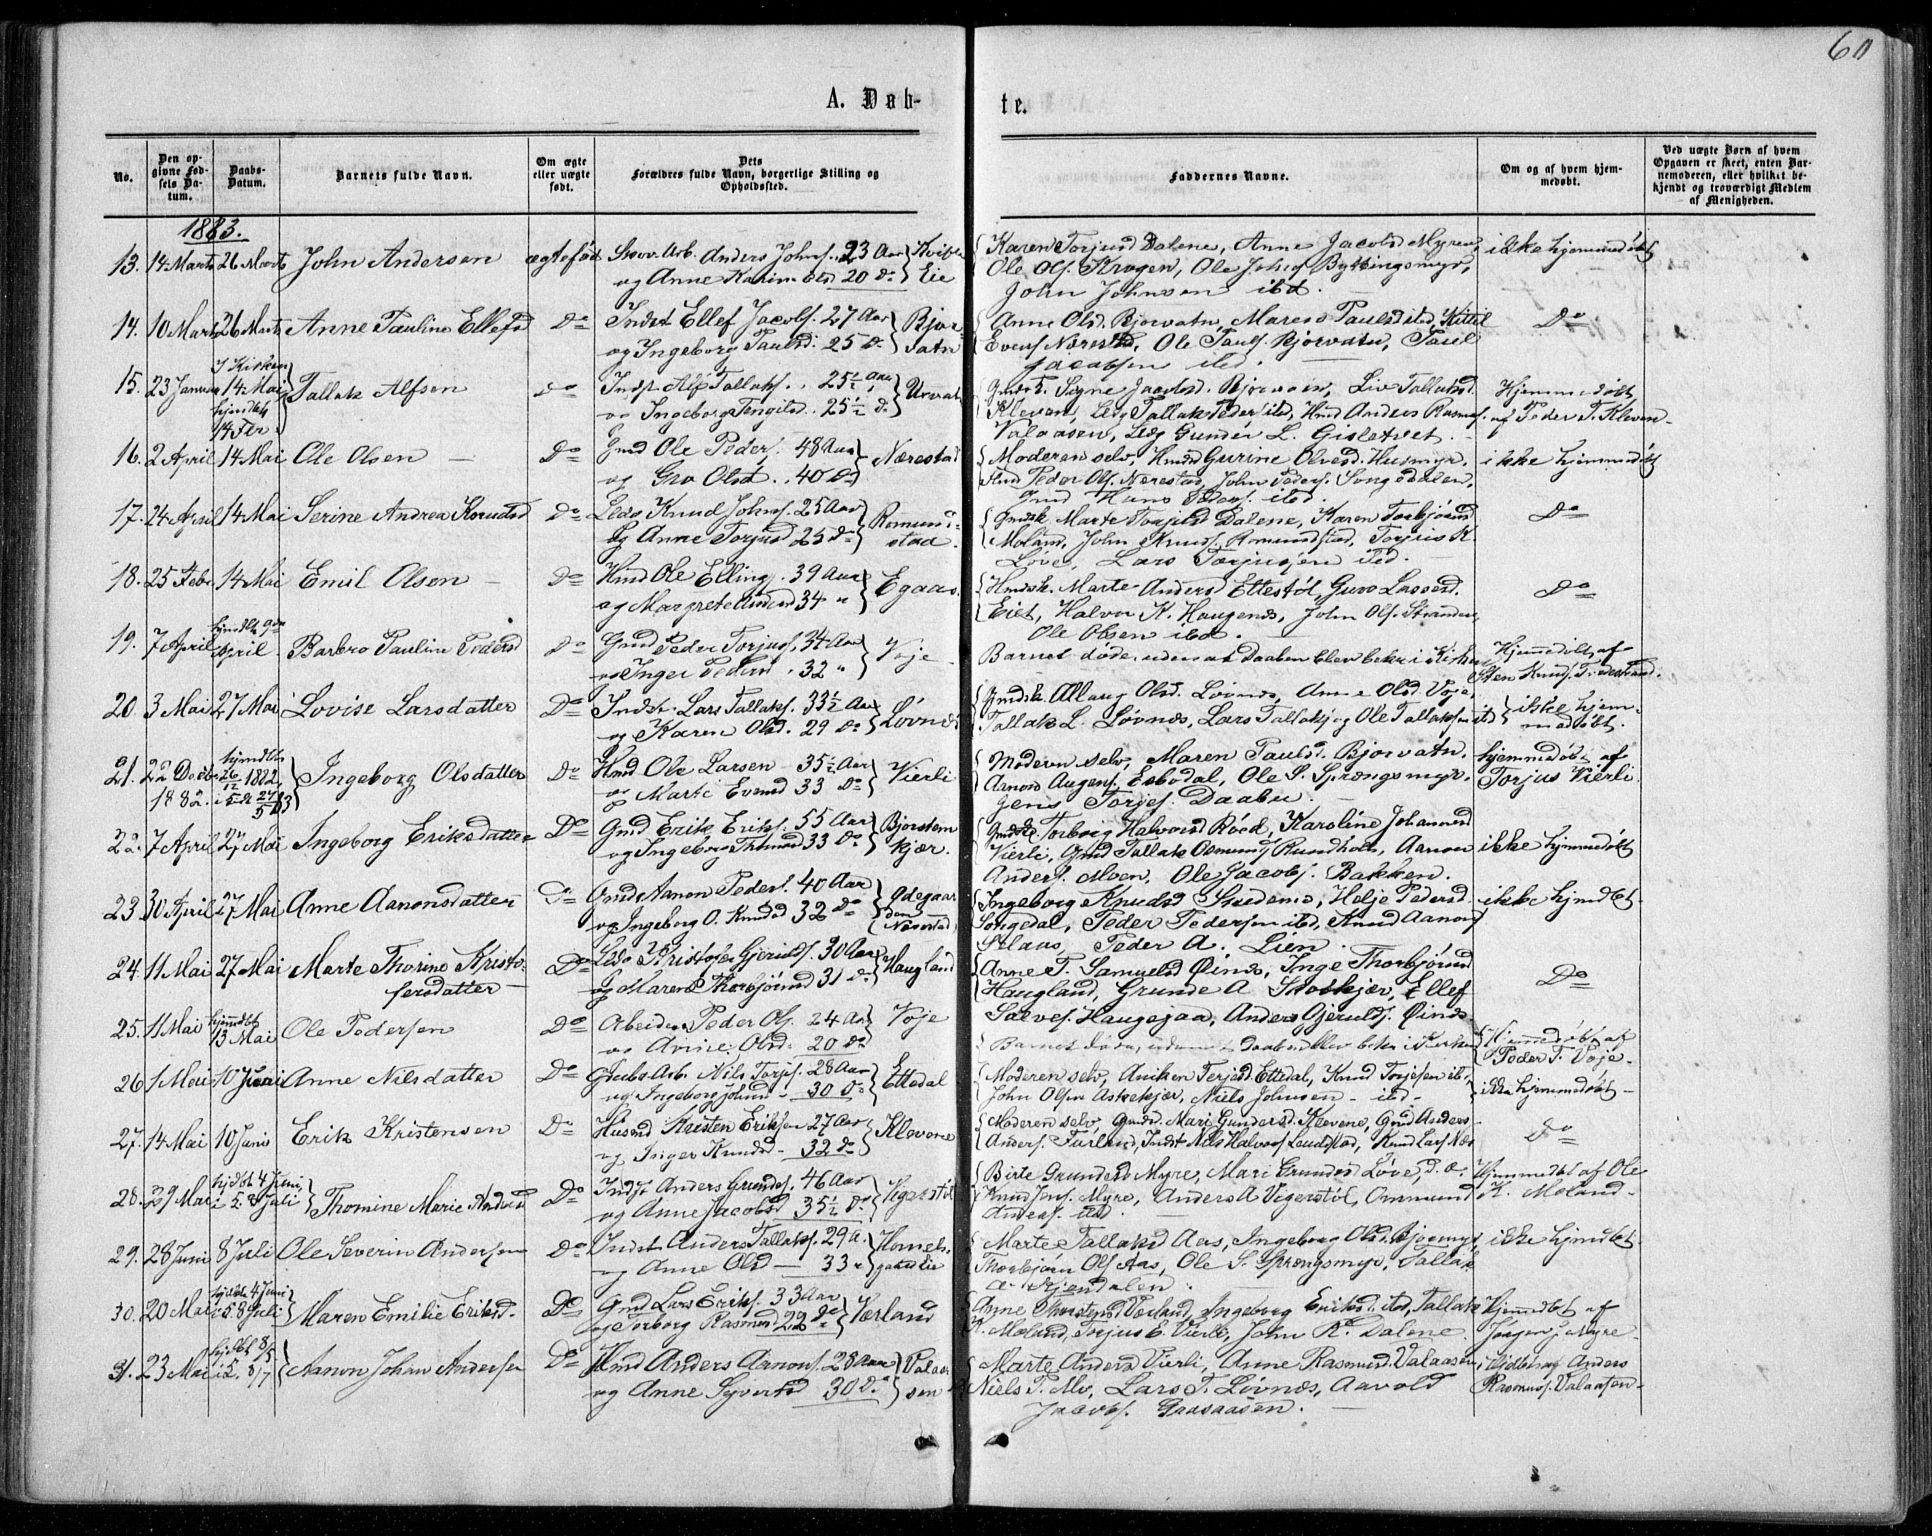 60
A. Døb-
te.
No.
Den op-
givne Fød-
sels Da-
tum.
Daabs-
Datum.
Barnets fulde Navn.
Om ægte
eller uægte
født.
Dets
Forældres fulde Navn, borgerlige Stilling og
Opholdssted.
Faddernes Navne.
Om og af hvem hjem-
medøbt.
Ved uægte Børn af hvem
Opgaven er skeet, enten Bar-
nemoderen, eller hvilket be-
kjendt og troværdigt Medlem
af Menigheden.
1883.
13. 14 Marts 26 Marts John Andersen ægtefød Anders Johns. 23 Aar
og Anne 20 Do Eie
Karen Torjusd Dalene, Anne Jacobsd Myrene
Ole Ols. Krogen, Ole Johns Byttingsmyr,
John Johnsen ibd.
ikke hjemmedøbt
14. 10 Marts 26 Marts Anne Pauline Ellefsd Do Indst Ellef Jacobs. 27 Aar
og Ingeborg Paulsd. 25 Do Bjor-
vatn
Anne Olsd. Bjorvatn, Maren Paulsd ibd, Kittil
Evens Nærestad, Ole Pauls. Bjorvatn, Paul
Jacobsen ibd.
Do
15. 23 Januar I Kirken
14 Mai
hjmdbt
14 Feb
Tallak Alfsen Do Indst. Alf Tallaks. 25½ Aar
og Ingeborg 25½ Do
Signe Jacobsd. Liv Tallaksd.
Kleven, Tallak Peders ibd, Anders Rasmus.
Valaasen, Gunder L.
Hjemmedøbt
af Peder T. Kleven
16. 2 April 14 Mai Ole Olsen Do Gmd Ole Peders. 48 Aar
og Gro Olsd. 40 Do Nærestad
Moderen selv, Gurine Olvesd. Husmyr.
Peder Ols. Nærestad, John Peders. Songedalen,
Gmd Hans Peders. ibd.
ikke hjemmedøbt
17. 24 April 14 Mai Serine Andrea Knudsd Do Knud Johns. 25 Aar
og Anne Torjusd 25 Do Romund-
stad.
Marte Torjusd Dalene, Karen Torbjørnsd
Moland, John Knuds. Romundstad, Torjus K.
Løve, Lars Torjusøen ibd.
Do
18. 25 Febr 14 Mai Emil Olsen Do Hmd Ole Ellings. 39 Aar
og Margrete 34 " Egaas.
Marte Andersd Ettestøl, Guro Lassesd.
Eiet, Halvor K. Haugenes, John Ols. Stranden,
Ole Olsen ibd.
Do
19. 7 April hjmdbt 9de
April
Barbro Pauline Pedersd Do Gmd Peder Torjus. 34 Aar
og Inger Pedersd. 32 " Voje
Barnet døde, uden at Daaben blev bekr. i Kirken
Hjemmedøbt af
20. 3 Mai 27 Mai Lovise Larsdatter Do Indst. Lars Tallaks. 33½ Aar
og Karen Olsd. 29 Do Løvnes
Allaug Olsd. Løvnes, Anne Olsd. Voje,
Tallak L. Løvnes, Lars Tallaks og Ole Tallaksen ibd
ikke hjem-
medøbt.
21. 22 Decbr
1882.
hjmdbt
26/12 1882
i K d 27/5 83
Ingeborg Olsdatter Do Hmd Ole Larsen 35½ Aar
og Marte Evensd 33 Do Vierli
Moderen selv, Maren Paulsd. Bjorvatn.
Arnold Ole S. Sprængsmyr.
Jens Torjes. Daabu.
hjemmedøbt af
Torjus Vierli
22. 7 April 27 Mai Ingeborg Eriksdatter Do Gmd Erik Eriks. 55 Aar
og Ingeborg Thomasd 33 Do Bjorsten-
kjær.
Torborg Halvorsd Røed, Karoline Johannesd
Vierli, Gmd Tallak Osmunds Rundholt, Aanon
Anders. Moen, Ole Jacobs. Bakken.
ikke hjemmedøbt
23. 30 April 27 Mai Anne Aanonsdatter Do Gmd Aanon Peders. 40 Aar
og Ingeborg O. Knudsd 32 Do Ødegaar-
den
(Nærestad)
Ingeborg Knudsd Helje Pedersd.
Songedal, Peder Pedersen ibd, Knud Aanons
Peder A. Lien.
ikke hjmdbt
24. 11 Mai 27 Mai Marte Thorine Kristo-
fersdatter Do Kristofer Gjerulds. 30 Aar
og Maren Thorbjørnsd 31 Do Haugland
Anne T. Samuelsd Øines, Inge Thorbjørnsd
Haugland, Grunde A. Ellef
Salves. Haugejaa, Anders Gjerulds. Øines
Do
25. 11 Mai hjemdbt
13 Mai
Ole Pedersen Do Arbeider Peder Ols. 24 Aar
og Anne Olsd. 20 Do Voje
Barnet døde, uden at Daaben blev bekr. i Kirken
Hjemmedøbt af
Peder T. Voje
26. 1 Mai 10 Juni Anne Nilsdatter Do Grubearb. Nils Torjs. 28 Aar
og Ingeborg Johnsd 30 Do Ettedal
Moderen selv, Aniken Terjesd. Ettedal, Knud Torjesen ib,
John Olsen Askekjær, Niels Johnsen ibd
ikke hjemmedøbt
27. 14 Mai 10 Juni Erik Kristensen Do Husmd Kristen Eriksen 27 Aar
og Inger Knudsd. 32 Do Klevene
Moderen selv, Mari Gundersd. Klevene, Gmd Anders
Anders. Indst Nils Halvors Knud Lars Næs
Do
28. 29 Mai hjdbt 4 Juni
i K. 8 Juli
Thomine Marie Andersd Do Indst Anders Grundes. 46 Aar
og Anne Jacobsd 35½ Do Vegerstøl
Birte Grundesd Myre, Mari Grundesd Løve,
Knud Jens. Myre, Anders A Vegerstøl, Ommund
Anders. ibd.
Hjemmedøbt af Ole
K. Moland
29. 28 Juni 8 Juli Ole Severin Andersen Do Indst Anders Tallaks. 29 A.
og Anne Olsd 33 "
Marte Tallaksd Aas, Ingeborg Olsd.
Thorbjørn Ols. Aas, Ole S. Sprængsmyr, Tallak
ikke hjmdbt.
30. 20 Mai hjdbt 4 Juni
i K 8 Juli
Maren Emilie Eriksd. Do Gmd Lars Eriks. 33 Aar
og Torborg Rasmusd 22 Do Værland
Anne Værland, Ingeborg Eriksd. ibd, Tallak
K. Moland, Torjus E. Vierli, John K. Dalene.
Hjemmedøbt af
Jørgen J. Myre
31. 23 Mai hjdbt 3/5
i K. 8/7
Aanon Johan Andersen Do Hmd Anders Aanons. 28 Aar
og Anne Syvertsd 30 Do Valaa-
sen
Marte Andersd Vierli, Anne Rasmusd. Valaasen,
Niels P. Mo, Lars T. Løvnes, Aavold
Jacobs. Graasaasen.
Hjdbt af Anders
Rasmuss. Valaasen